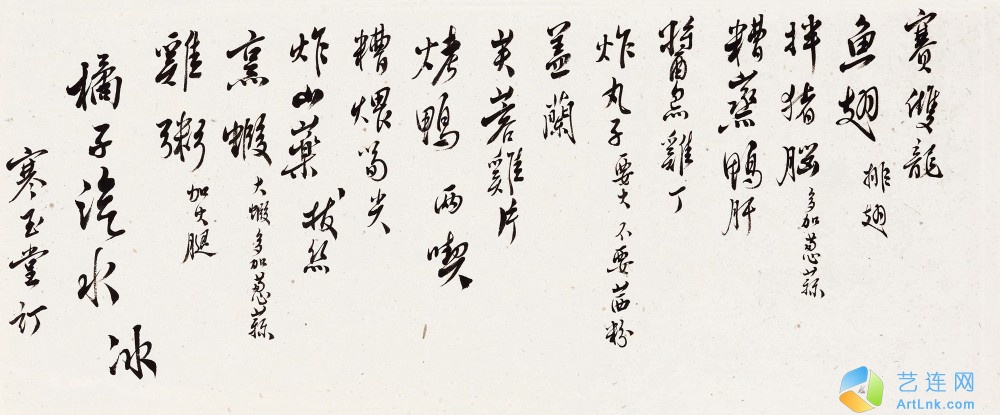 賽雙龍
魚翅 排翅
拌猪腦 多加葱蒜
糟蒸鴨肝
醬烹雞丁
炸丸子 要大 不要 粉
蓋蘭
芙蓉雞片
烤鴨 兩喫
糟煨筍尖
炸山藥 拔絲
烹蝦 大蝦多加葱蒜
雞粥 加火腿
橘子汽水 冰
寒玉堂訂
艺连网
ArtLnk.com